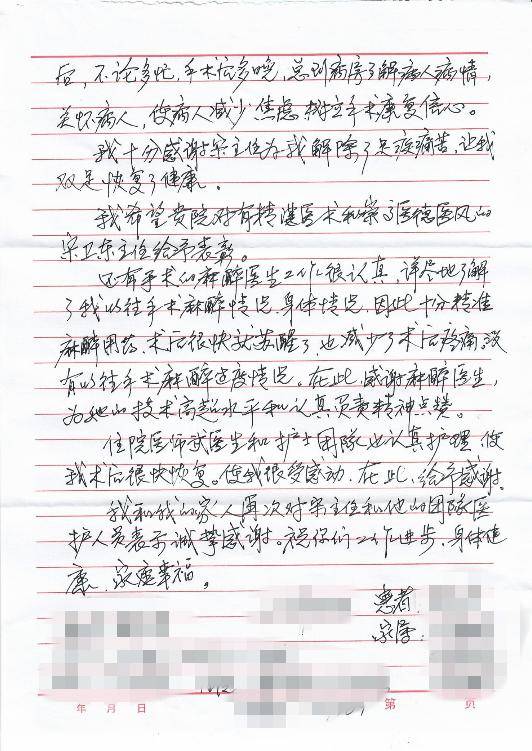 后，不论多忙，手术后多晚，总到病房了解病人病情，
关怀病人，使病人减少焦虑树立手术康复信心。
我十分感谢宋主任为我解除了足疾痛苦，让我
双足恢复了健康。
我希望贵院对有精湛医术和崇高医德医风的
宋卫东主任给予表彰。
还有手术的麻醉医生工作很认真，详尽地了解
了我以往手术麻醉情况、身体情况，因此十分精准
麻醉用药，术后很快就苏醒了，也减少了术后疼痛，没
有以往手术麻醉过度情况。在此，感谢麻醉医生，
为她的技术高超水平和认真负责精神点赞。
住院医师武医生和护士团队也认真护理，使
我术后很快恢复。使我很受感动，在此，给予感谢。
我和我的家人再次对宋主任和他的团队医
护人员表示诚挚感谢。祝你们工作进步，身体健
康、家庭幸福。
患者：
家属：
年 月 日 第 页